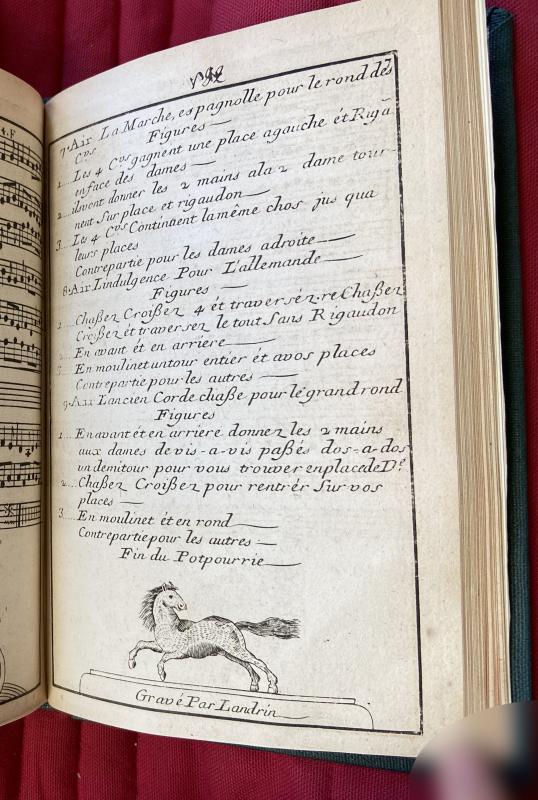 7. Air La Marche, espagnolle pour le rond des
C.vs Figures
1.... Les 4 C.vs gagnent une place agauche ét Riga
enface des dames
2... ilsvont donner les 2 mains ala 2 dame tour
nent Sur place et rigaudon
3.... Les 4 C.vs Continüent lamême chos jus qua
leurs places
Contrepartie pour les dames adroite
8. Air Lindulgence Pour L'allemande
Figures
1.... Chaßez Croißez 4 ét traverséz.re Chaßez
Croißez ét traversez le tout Sans Rigaudon
2... En avant ét en arriere
3... En moulinet untour entier ét avos places
Contrepartie pour les autres
9. Air Lancien Corde chaße pour le grand rond
Figures
1... Enavant ét en arriere donnez les 2 mains
aux dames devis-a-vis paßés dos-a-dos
undemitour pour vous trouver enplacedeD.e
2... Chaßez Croißez pour rentrér Sur vos
places
3..... En moulinet ét en rond
Contrepartie pour les autres
Fin du Potpourrie
Gravé Par Landrin